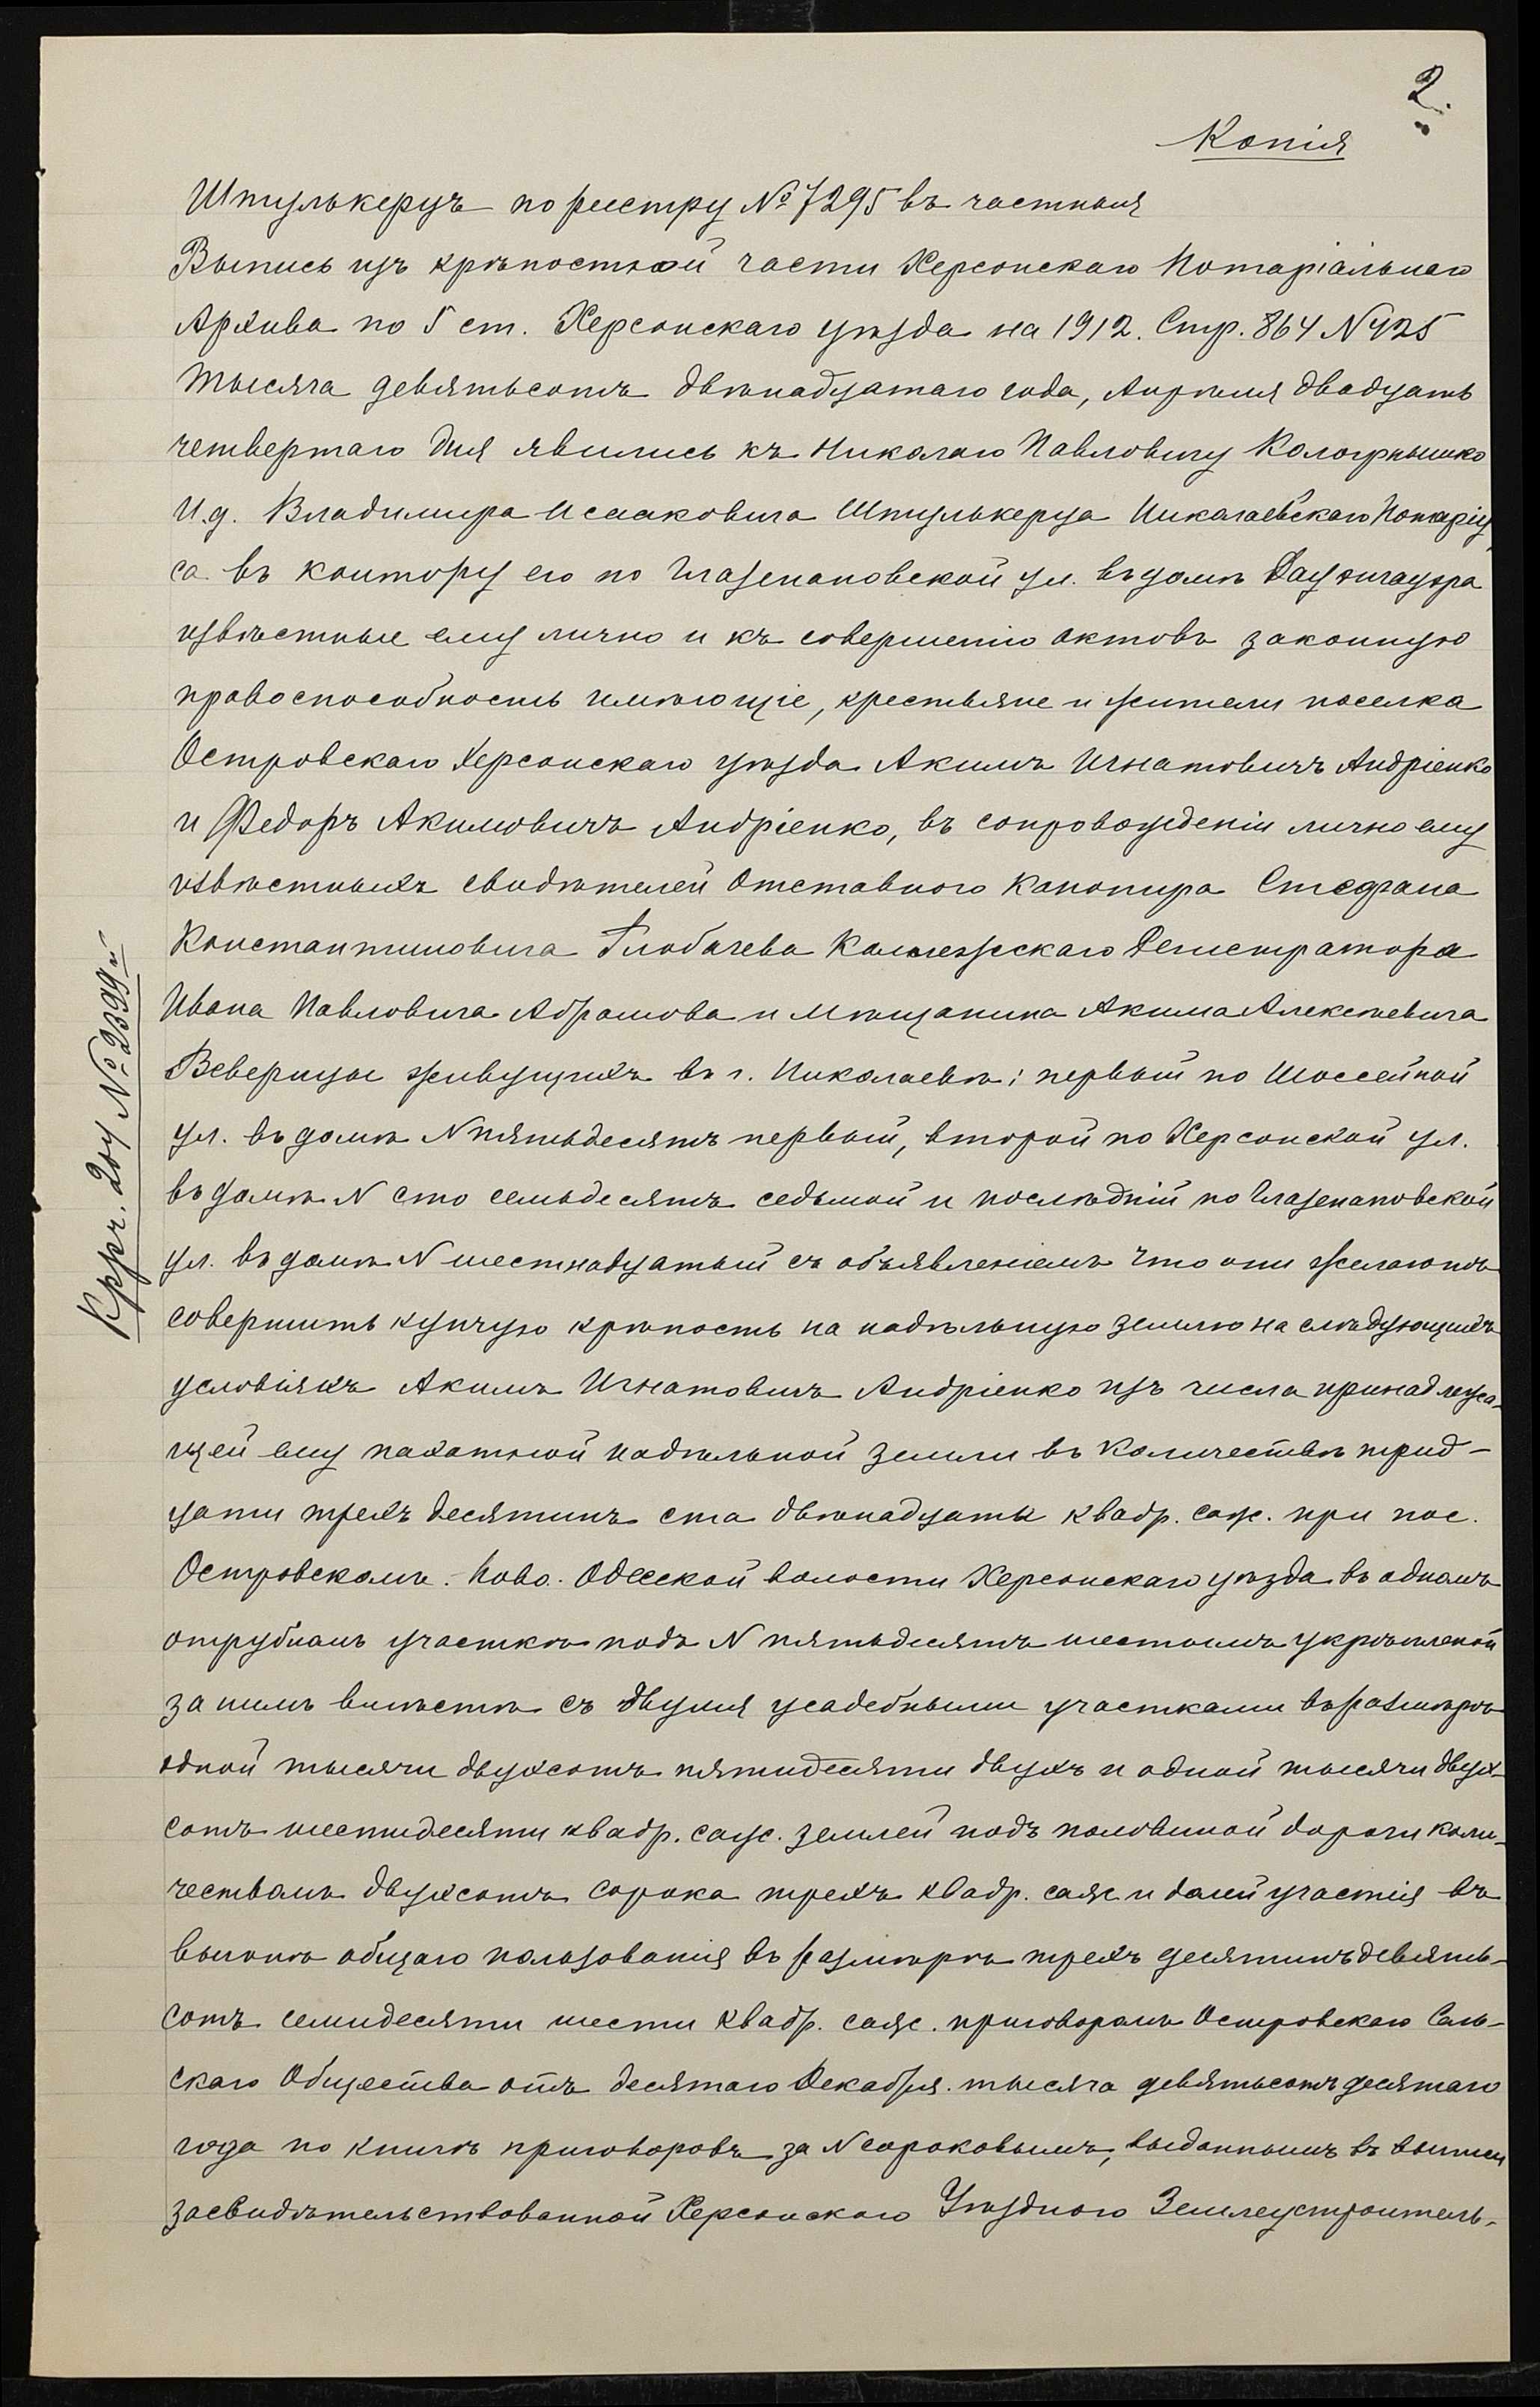 2.
Копія
Штулькерцъ по реестру № 7295 въ частныя
Выпись изъ крѣпостной части Херсонскаго Нотаріальнаго
Архива по 5 ст. Херсонскаго уѣзда на 1912. Стр. 864 N 425
Тысяча девятьсотъ двѣнадцатаго года, Апрѣля двадцать
четвертаго дня явились къ Николаю Павловичу
И.д. Владимира Исааковича Штулькерца Николаевскаго Нотаріу,
са въ контору его по Глазенаповской ул. въ домѣ
извѣстные ему лично и къ совершенію актовъ законную
правоспособность имѣющіе, крестьяне и жители поселка
Островскаго Херсонскаго уѣзда Акимъ Игнатовичъ Андріенко
и Федоръ Акимовичъ Андріенко, въ сопровожденіи лично ему
извѣстныхъ свидѣтелей Отставного Канонира Стефана
Константиновича Глобачева Коллежскаго Регистратора
Ивана Павловича Абрамова и Мѣщанина Акима Алексѣевича
Веверицы живущихъ въ г. Николаевѣ; первый по Шоссейной
ул. въ домѣ N пятьдесятъ первый, второй по Херсонской ул.
въ домѣ N сто семьдесятъ седьмой и послѣдній по Глазенаповской
ул. въ домѣ N шестнадцатый съ объявленіемъ что они желаютъ
совершить купчую крѣпость на надѣльную землю на слѣдующихъ
условіяхъ Акимъ Игнатовичъ Андріенко изъ числа принадлежа-
щей ему пахатной надѣльной земли въ количествѣ трид-
цати трехъ десятинъ ста двѣнадцати квадр. саж. при пос.
Островскомъ. Ново. Одесской волости Херсонскаго уѣзда въ одномъ
отрубномъ участкѣ подъ N пятьдесятъ шестымъ укрѣпленой
за нимъ вмѣстѣ съ двумя усадебными участками въ размѣрѣ
одной тысячи двухсотъ пятидесяти двухъ и одной тысячи двух-
сотъ шестидесяти квадр. саж. землей подъ половиной дороги коли-
чествомъ двухсотъ сорока трехъ квадр. саж. и долей участія въ
выгонѣ общаго пользованія въ размѣрѣ трехъ десятинъ девять-
сотъ семидесяти шести квадр. саж. приговоромъ Островскаго Сель-
скаго Общества отъ десятаго Декабря. тысяча девятьсотъ десятаго
года по книгѣ приговоровъ за N сороковымъ, выданнымъ въ выписи
засвидѣтельствованной Херсонскаго Уѣзднаго Землеустроитель-
№ 2399